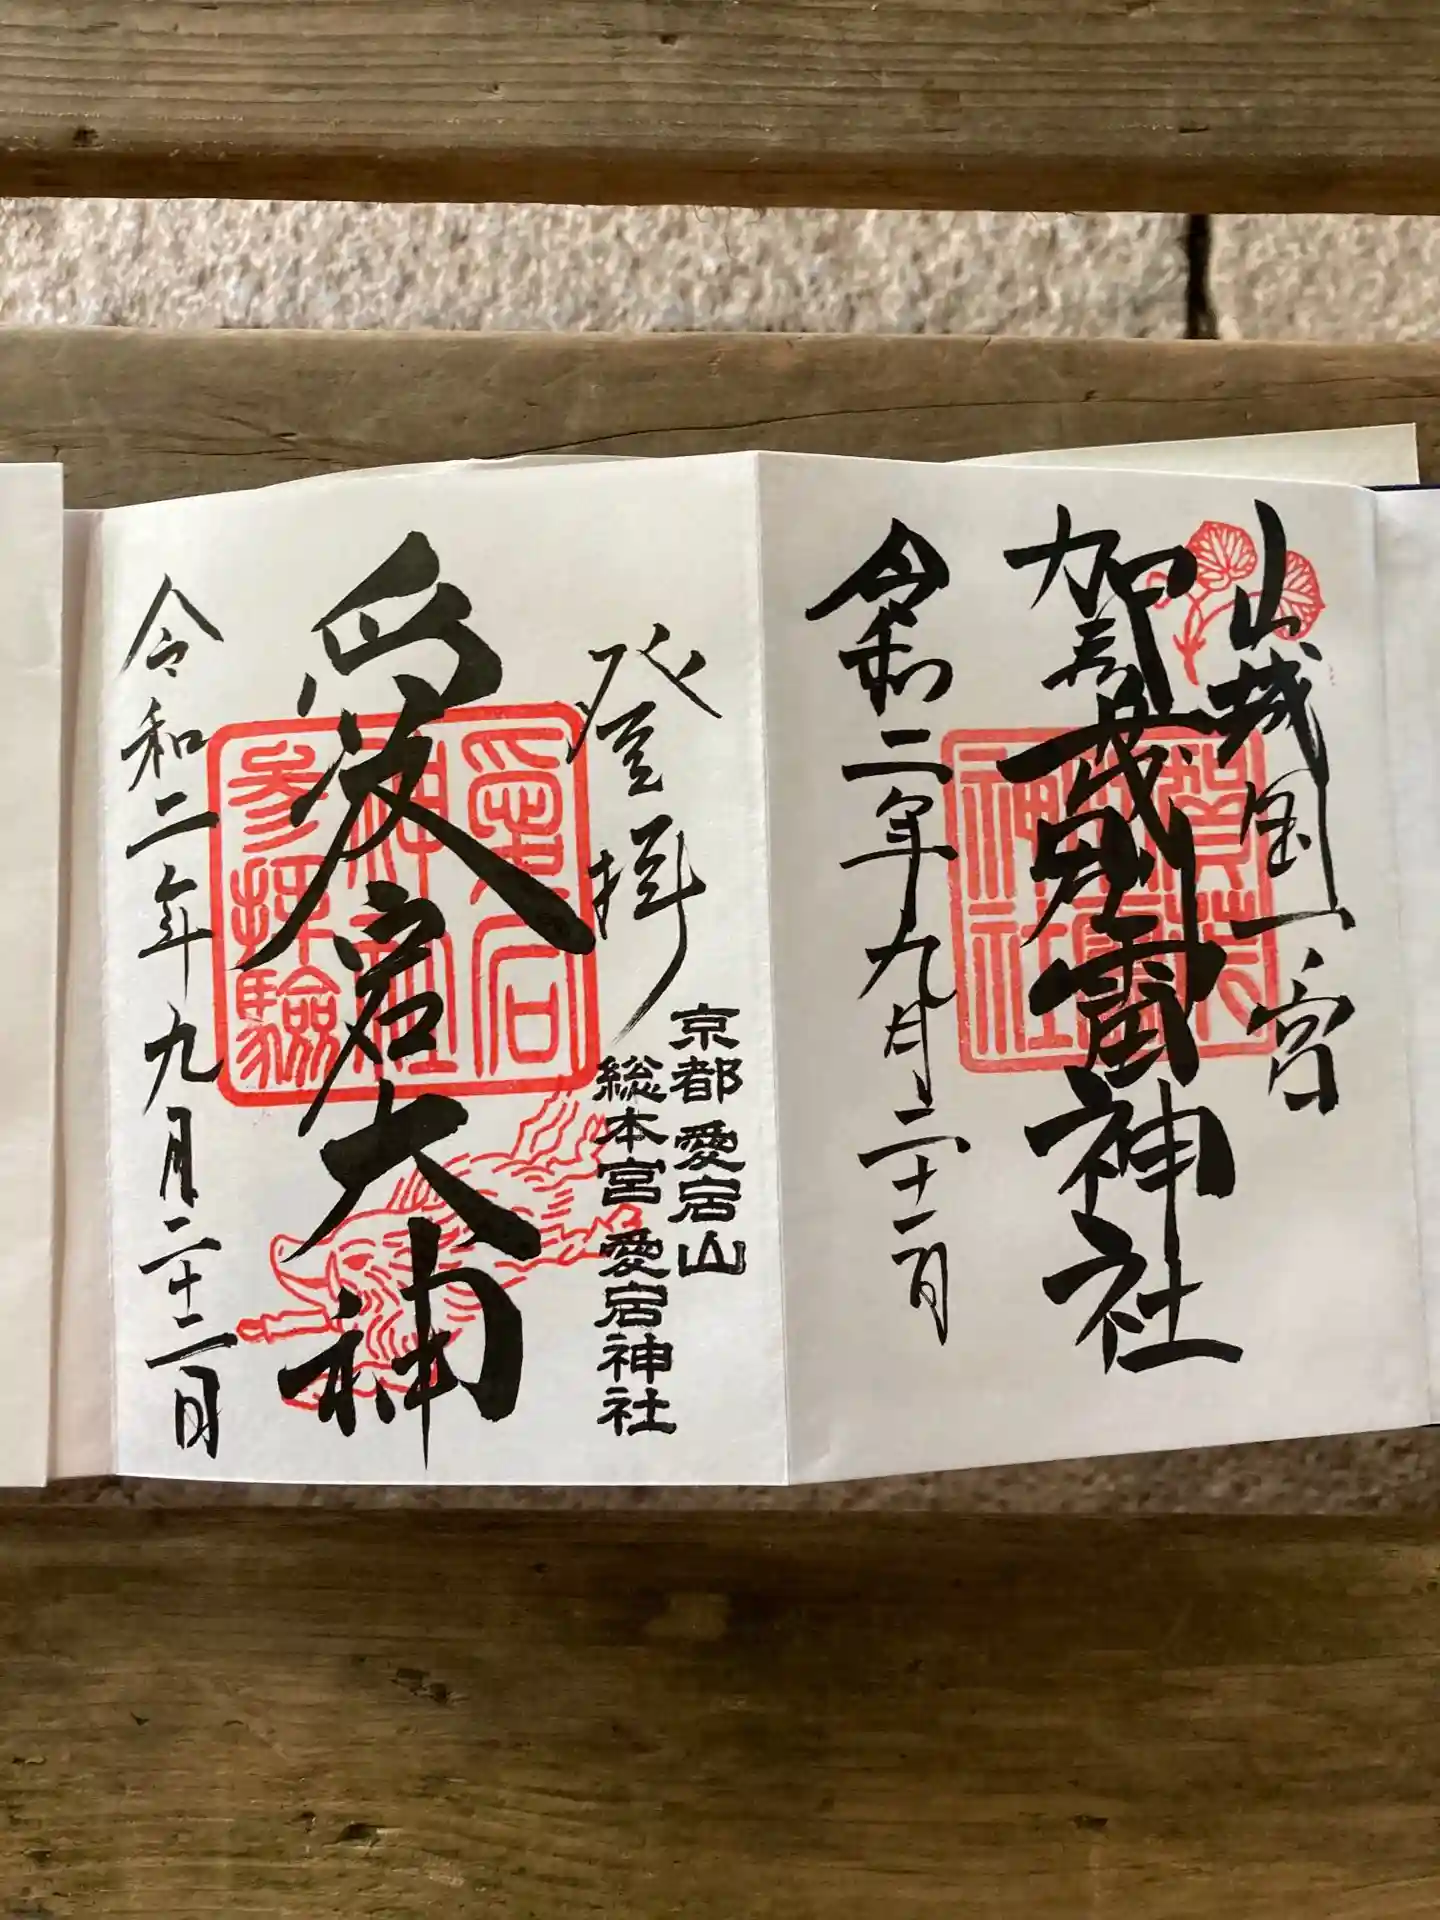 山城国一宮
賀茂別雷神社
令和二年九月二十一日
登拝
京都 愛宕山
総本宮 愛宕神社
愛宕大神
令和二年九月二十二日
愛宕
神社
参拝験